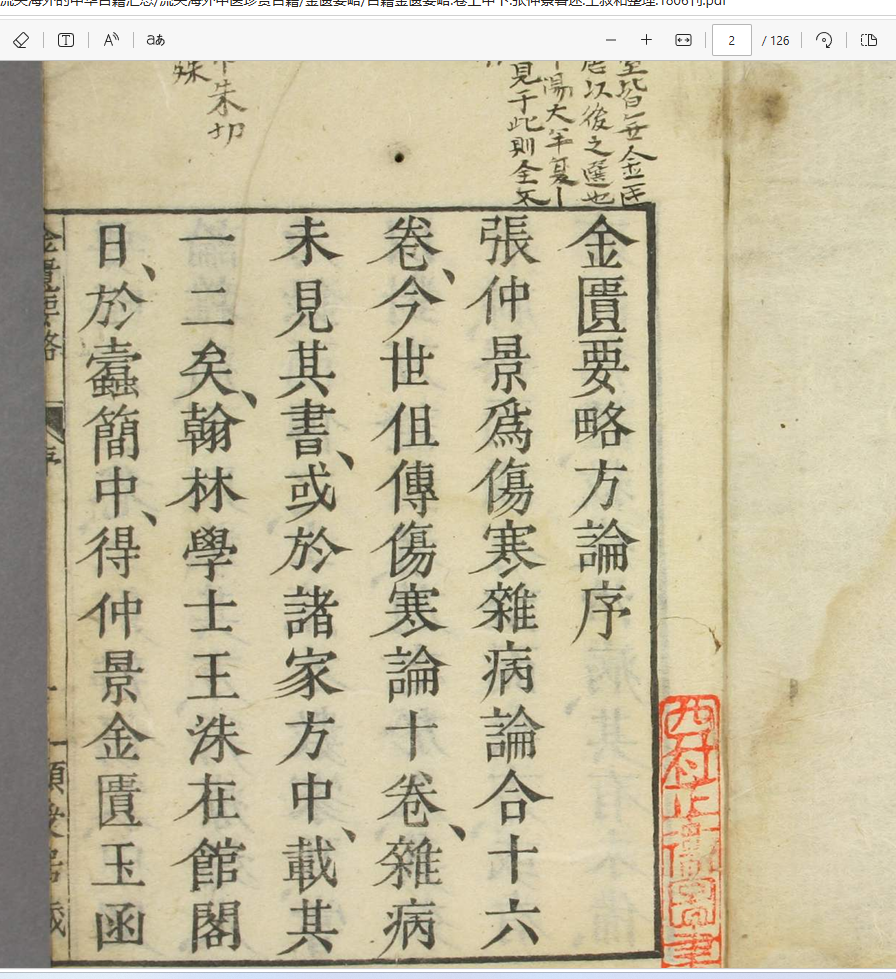 流失海外的中华古籍汇总/流失海外中医珍贵古籍/金匮要略/古籍金匮要略.卷上中下.张仲景著述.王叔和整理.1806刊.pdf
aあ 2 / 126
皆無金匱
以後之
大年夏
見于此則全
朱切
殊
金匱要略方論序
張仲景爲傷寒雜病論合十六
卷、今世但傳傷寒論十卷、雜病
未見其書、或於諸家方中、載其
一二矣、翰林學士王洙在館閣
日、於蠹簡中、得仲景金匱玉函
金匱要略